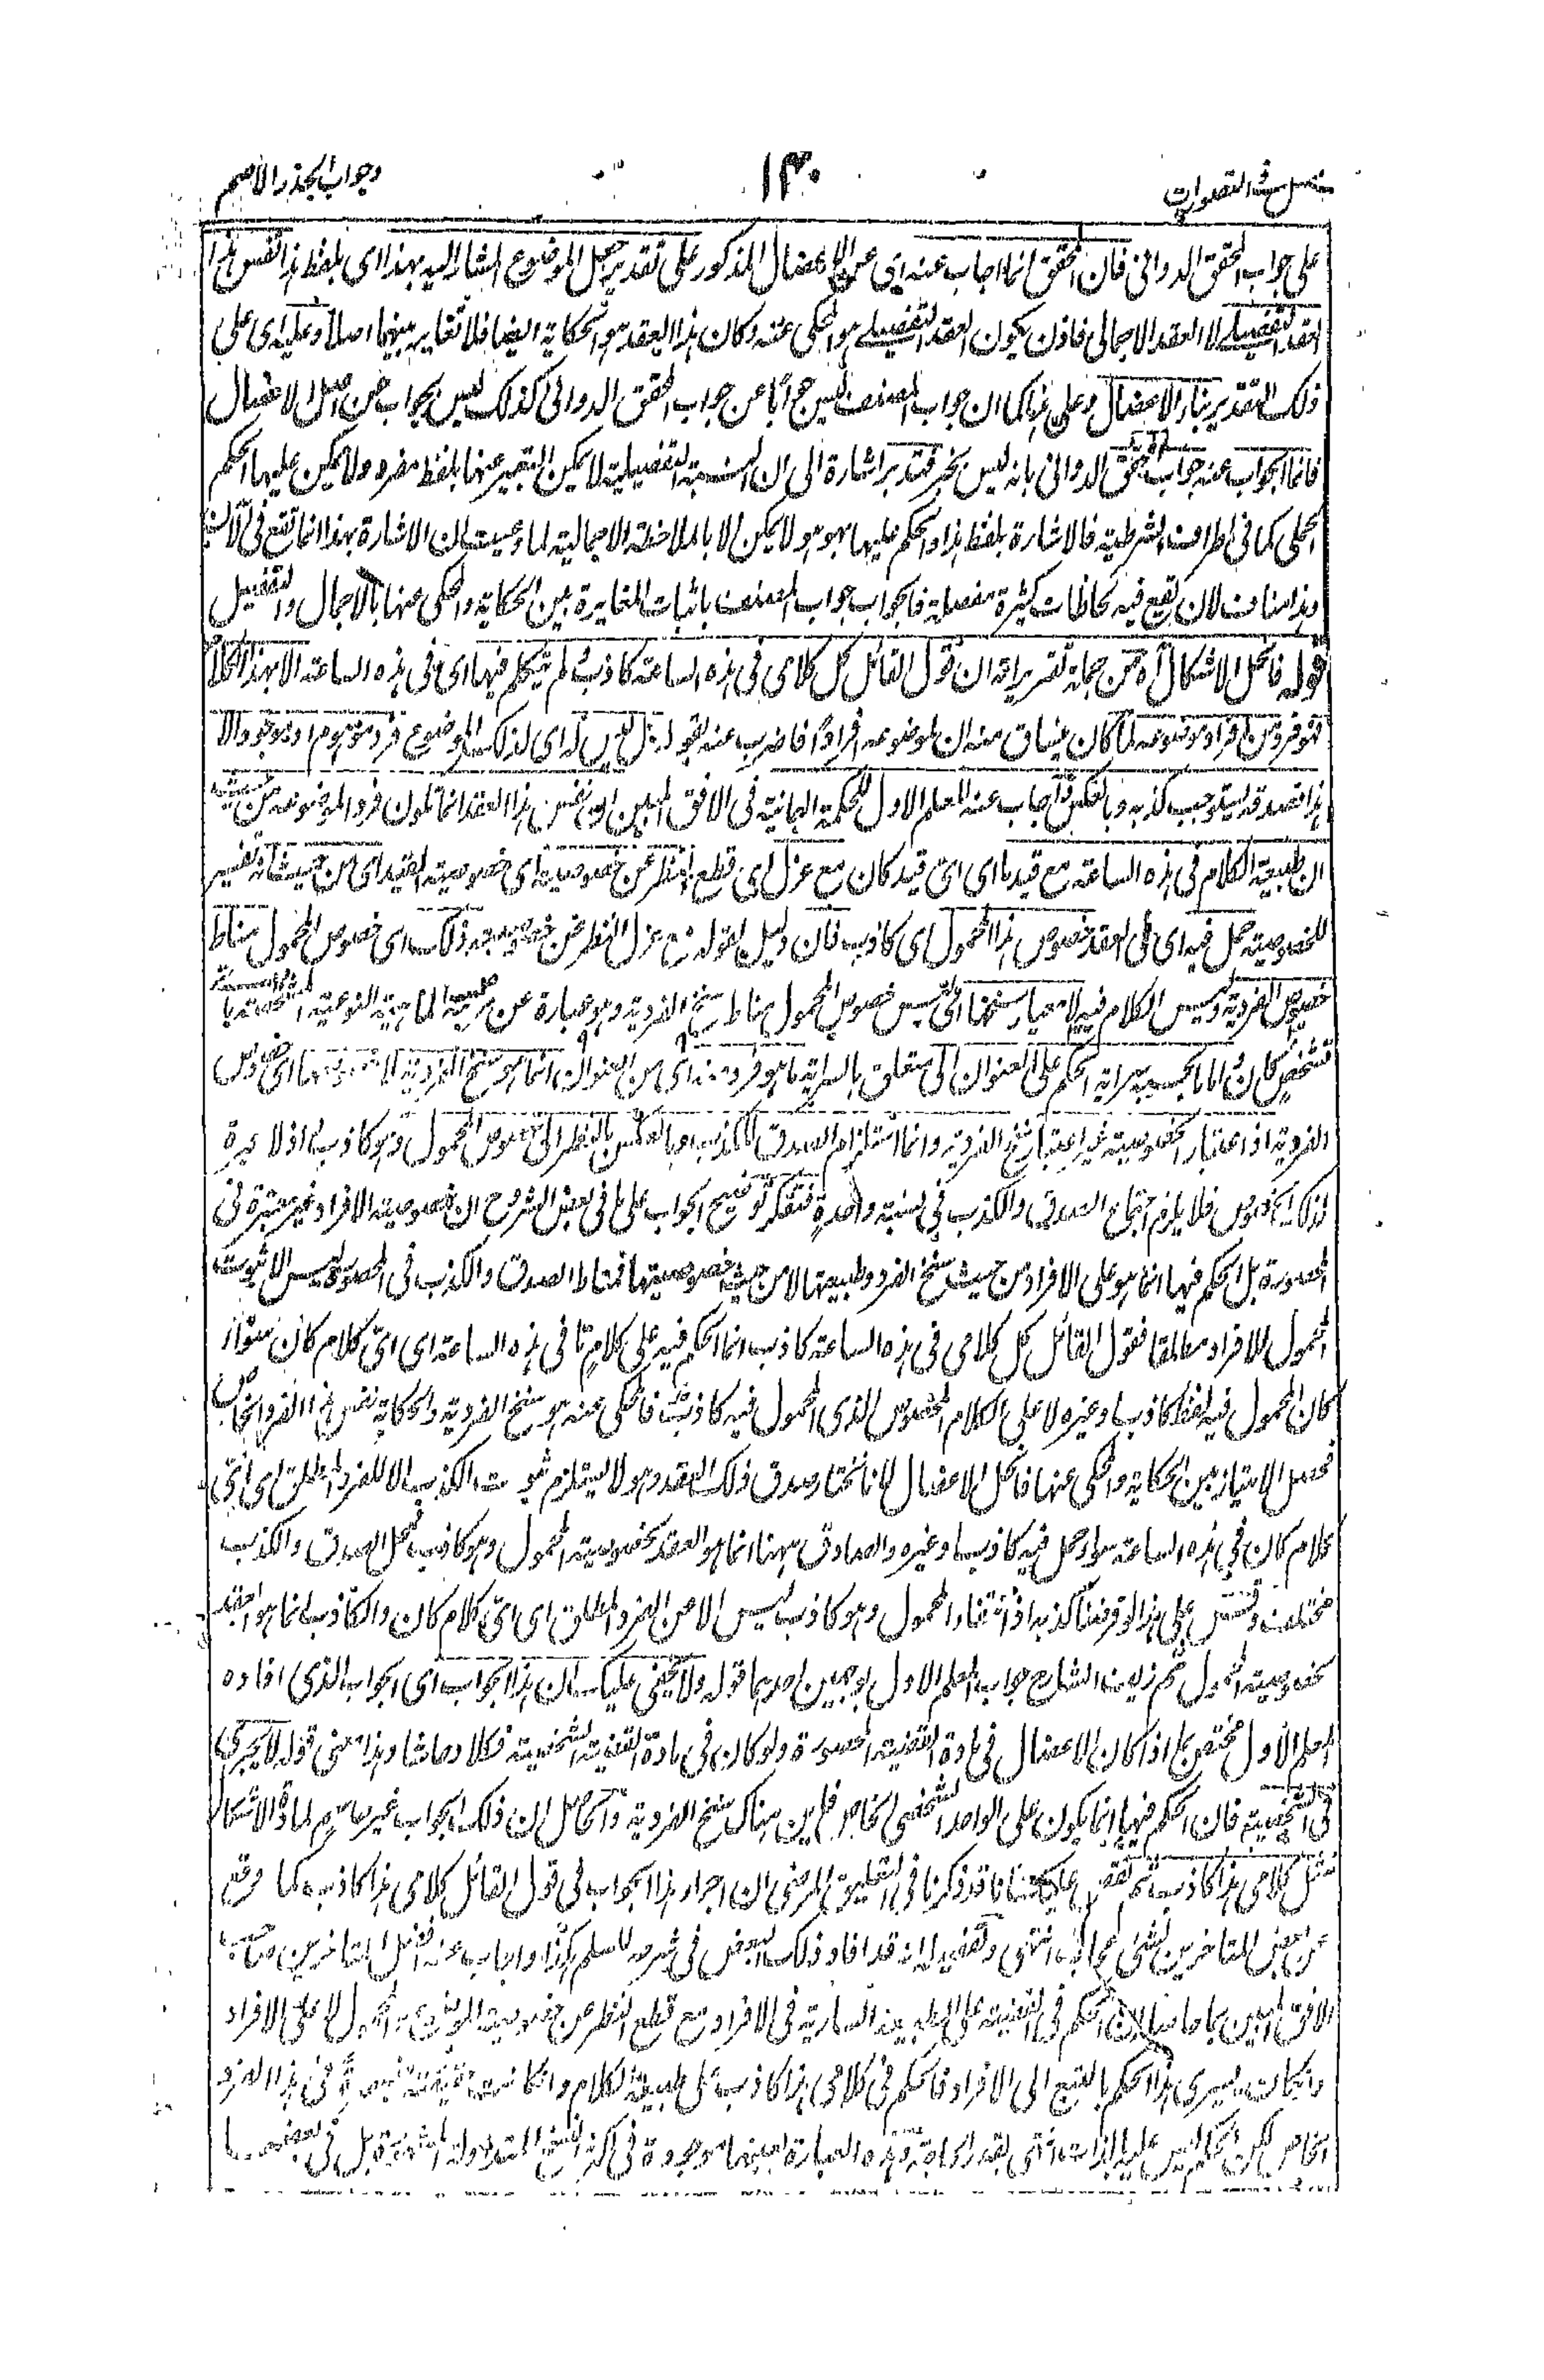 التصورات ١٣٠ وجواب الجذر الاصم
على جواب المحقق الدوانى فان المحقق انما اجاب عنه اى عن الاعضال المذكور على تقدير جعل الموضوع المشار اليه بهذا اى بلفظ هذا نفس هذا
العقد التفصيلى لا العقد الاجمالى فاذن يكون العقد التفصيلى هو المحكى عنه وكان هذا العقد هو الحكاية ايضا فلا تغاير بينهما اصلا وعليه اى على
ذلك التقدير بناء الاعضال وعلى هذا كما ان جواب المصنف ليس جوابا عن جواب المحقق الدوانى كذلك ليس بجواب عن اصل الاعضال
فانما الجواب عنه جواب المحقق الدوانى بانه ليس بخبر فتدبر اشارة الى ان النسبة التفصيلية لا يمكن التعبير عنها بلفظ مفرد ولا يمكن عليها الحكم
الحملى كما فى اطراف الشرطية فالاشارة بلفظ هذا والحكم عليها بهو هو لا يمكن الا بالملاحظة الاجمالية لما دريت ان الاشارة بهذا انما تقع فى الآن
وهذا مناف لان تقع فيه لحاظات كثيرة مفصلية فالجواب جواب المصنف باثبات المغايرة بين الحكاية والمحكى عنها بالاجمال والتفصيل
قوله فانحل الاشكال آه من جملة تقريراته ان قول القائل كل كلامى فى هذه الساعة كاذب ولم يتكلم فيها اى فى هذه الساعة الا بهذا الكلام
فهو فرد من افراد موضوعه لما كان ينساق منه ان لموضوعه افرادا فاضرب عنه بقوله بل ليس له اى لذلك الموضوع فرد موهوم او موجود الا
هذا فصدقه يستوجب كذبه وبالعكس واجاب عنه المعلم الاول للحكمة اليمانية فى الافق المبين ان نفس هذا العقد انما تكون فردا لموضوعه من حيث
ان طبيعة الكلام فى هذه الساعة مع قيد ما اى اىّ قيد كان مع عزل اى قطع النظر عن خصوصيته اى خصوصية القيد اى من حيث انه تفسير
للخصوصية حمل فيه اى فى العقد خصوص هذا المحمول اى كاذب فان دليل لقوله مع عزل النظر عن خصوصيته ذلك اى خصوص المحمول مناط
خصوص الفردية وليس الكلام فيه لا معيار سنخها اى ليس خصوص المحمول مناط سنخ الفردية وهو عبارة عن الماهية النوعية المتحدة با
تشخص كان واما ما بحسبه سراية الحكم على العنوان الى متعلق بالسراية ما هو فرد منه اى من العنوان انما هو سنخ الفردية لا خصوصها اى خصوص
الفردية اذ اعتبار الخصوصية غير اعتبار سنخ الفردية وانما استلزام الصدق للكذب او بالعكس بالنظر الى خصوص المحمول وهو كاذب اذ لا عبرة
لذلك الخصوص فلا يلزم اجتماع الصدق والكذب فى نسبة واحدة فتفكر توضيح الجواب على ما فى بعض الشروح ان خصوصية الافراد غير معتبرة فى
المحصورة بل الحكم فيها انما هو على الافراد من حيث سنخ الفرد وطبيعتها لا من حيث خصوصيتها فمناط الصدق والكذب فى المحصورة ليس الا ثبوت
المحمول للافراد مطلقا فقول القائل كل كلامى فى هذه الساعة كاذب انما الحكم فيه على كلام ما فى هذه الساعة اى اىّ كلام كان سواء
كان المحمول فيه لفظ كاذب او غيره لا على الكلام المخصوص الذى المحمول فيه كاذب فالمحكى عنه هو سنخ الفردية والحكاية نفس هذا الفرد الخاص
فحصل الامتياز بين الحكاية والمحكى عنها فانحل الاعضال لانا نختار صدق ذلك العقد وهو لا يستلزم ثبوت الكذب الا للفرد المطلق اى اىّ
كلام كان فى هذه الساعة سواء حمل فيه كاذب او غيره والصادق ههنا انما هو العقد بخصوصية المحمول وهو كاذب فمحل الصدق والكذب
مختلف وقس على هذا لو فرضنا كذبه اذ انتفاء المحمول وهو كاذب ليس الا عن الفرد المطلق اى اىّ كلام كان والكاذب انما هو العقد
بخصوصية المحمول ثم زيف الشارح جواب المعلم الاول بوجهين احدهما قوله ولا يخفى عليك ان هذا الجواب اى الجواب الذى افاده
المعلم الاول مختص بما اذا كان الاعضال فى مادة القضية المحصورة ولو كان فى مادة القضية الشخصية فكلا وحاشا وهذا معنى قوله لا يجرى
فى الشخصية فان الحكم فيها انما يكون على الواحد الشخصى الخاص فاين هناك سنخ الفردية والحاصل ان ذلك الجواب غير حاسم لمادة الاشكال
مثل كلامى هذا كاذب ثم نقض عليك انا قد ذكرنا فى التعليق المرضى ان اجراء هذا الجواب فى قول القائل كلامى هذا كاذب كما وقع
عن بعض المتاخرين لشئ عجاب انتهى وتفصيله انه قد افاد ذلك البعض فى شرحه للسلم هكذا واجاب عنه افضل المتاخرين صاحب
الافق المبين بما حاصله ان الحكم فى القضية على الطبيعة السارية فى الافراد مع قطع النظر عن خصوصية الموضوع والمحمول لا على الافراد
وانكانت يسرى هذا الحكم بالتبع الى الافراد فالحكم فى كلامى هذا كاذب على طبيعة الكلام وانكانت فى هذا الفرد
الخاص لكن الحكم ليس عليه بالذات انتهى بقدر الحاجة وهذه العبارة بعينها موجودة فى اكثر النسخ المتداولة المشهورة بل فى بعضها